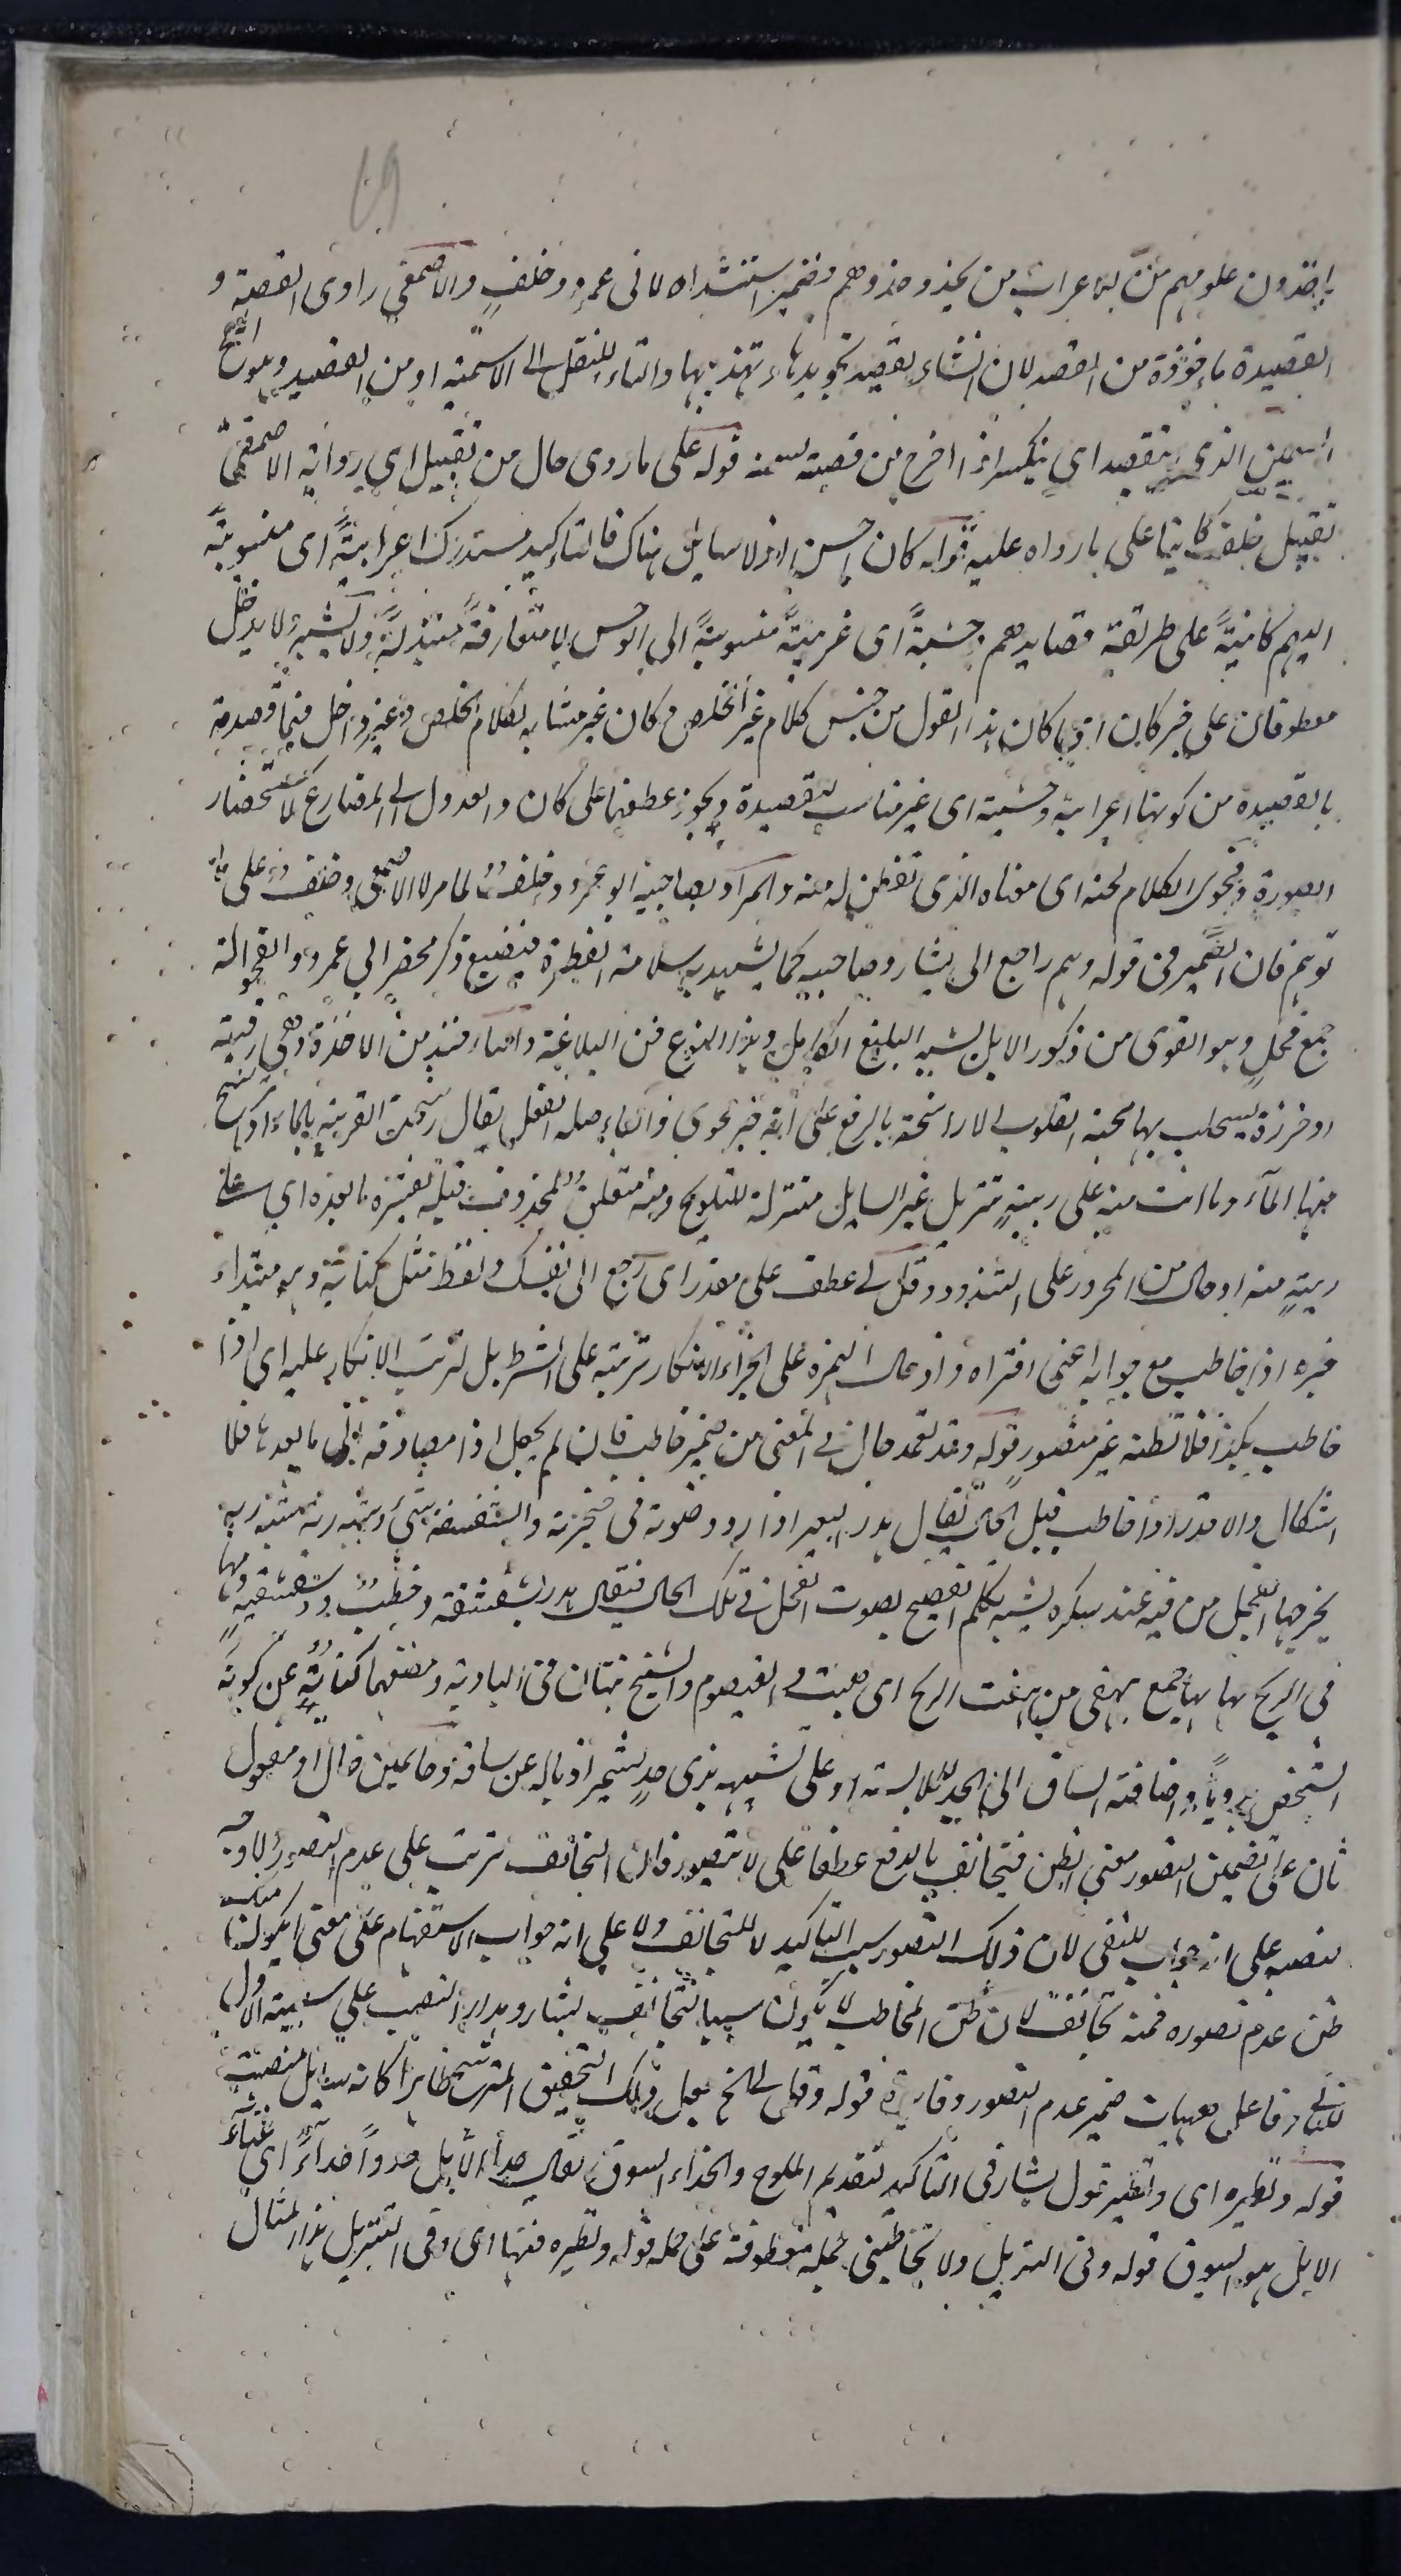 ٤٩
يأخذون علومهم من الاعراب من يحذو حذوهم وضمير استنشداه لابي عمرو وخلف والاصمعي راوي القصة و
القصيدة مأخوذة من القصد لان الشاعر يقصد تجويدها وتهذيبها والتاء للنقل الى الاسمية او من القصيد وهو المخ
السمين الذي يتقصد اي يتكسر اذا اخرج من قصبته لسمنه قوله على ما روى حال من تقبيل اي رواية الاصمعي
تقبيل خلف كائنا على ما رواه عليه قوله كان احسن اذ لا سائل هناك فالتأكيد مستدرك اعرابية اى منسوبة
اليهم كائنة على طريقة قصايدهم وحشية اى غريبة منسوبة الى الوحش لا متعارفة مبتذلة ولا يشبه ولا يدخل
معطوفان على خبر كان اى كان هذا القول من جنس كلام غير الخلص وكان غير مشابه لكلام الخلص وغير داخل فيما قصدته
بالقصيدة من كونها اعرابية وحشية اى غير مناسب للقصيدة ويجوز عطفهما على كان والعدول الى المضارع لاستحضار
الصورة وفحوى الكلام لحنه اى معناه الذى تفطن له منه والمراد بصاحبيه ابو عمرو وخلف لما مر لا الاصمعي وخلف على ما
توهم فان الضمير فى قوله وهم راجع الى بشار وصاحبيه كما يشهد به سلامة الفطرة فيضيع ذكر محضر ابي عمرو والفحولة
جمع فحل وهو القوى من ذكور الابل يشبه البليغ الكامل وهذا النوع فن البلاغة والتاء فيه من الاخذة وهى رقية
او خرزة يستجلب بها محبة القلوب الا راسخة بالرفع على انه خبر نحوى فالباء صلة الفعل يقال رشحت القربة بالماء اذا رشح
منها الماء وما انت منه على ريبة تنزيل غير السايل منزلة للتلويح ومنه متعلق بمحذوف قبله تفسره ما بعده اي على
ريبة منه او حال من المجرور على الشذوذ وقل لي عطف على مقدر اى راجع الى نفسك ولفظ مثل كناية وهو مبتداء
خبره اذا خاطب مع جوابه اعني افتراه وادخال الهمزة على الجزاء لانكار ترتبه على الشرط بل ترتب الانكار عليه اى اذا
خاطب بكذا فلا تظنه غير متصور قوله وقد تعمد حال فى المعنى من ضمير خاطب فان لم يجعل اذا مضافة الى ما بعدها فلا
اشكال والا قدر اذا خاطب قبل الحال يقال هدر البعير اذا ردد صوته فى حنجرته والشقشقة شيء يشبه رية
يخرجها الفحل من فيه عند سكره يشبه تكلم الفصيح بصوت الفحل فى تلك الحال فيقال هدر شقشقة وخطب ذو شقشقة وهما
في الريح لها جمع يهفى من هفت الريح اى هبت و القيصوم والشيخ نبتان فى البادية ومضغهما كناية عن كونه
الشخص بدويا واضافة الساق الى الجد للملابسة او على تشبيهه بذى جد يشمر اذياله عن ساقه وحايمين حال او مفعول
ثان على تضمين التصور معنى الظن فيتجانف بالرفع عطفا على لا يتصور فان التجانف ترتب على عدم التصور ولا وجه
لنصبه على انه جواب للنفي لان ذلك التصور سبب التأكيد لا للتجانف ولا على انه جواب الاستفهام على معنى ايكون منك
ظن عدم تصوره فمنه تجانف لان ظن المخاطب لا يكون سببا لتجانف بشار ومدار النصب على سببية الاول
للثاني وفاعل هيهات ضمير عدم التصور وفايدة قوله وقل لي الخ بعد ذلك التحقيق المترشح ظاهرا كانه سايل
قوله ونظيره اى ونظير قول بشار فى التاكيد لتقديم الملوح والحداء السوق يقال حدا الابل حدوا حداء اى غناء
الابل هو السوق قوله وفى التنزيل ولا تخاطبني جملة معطوفة على جملة قوله ونظيره فغنها اى وفى التنزيل هذا المثال